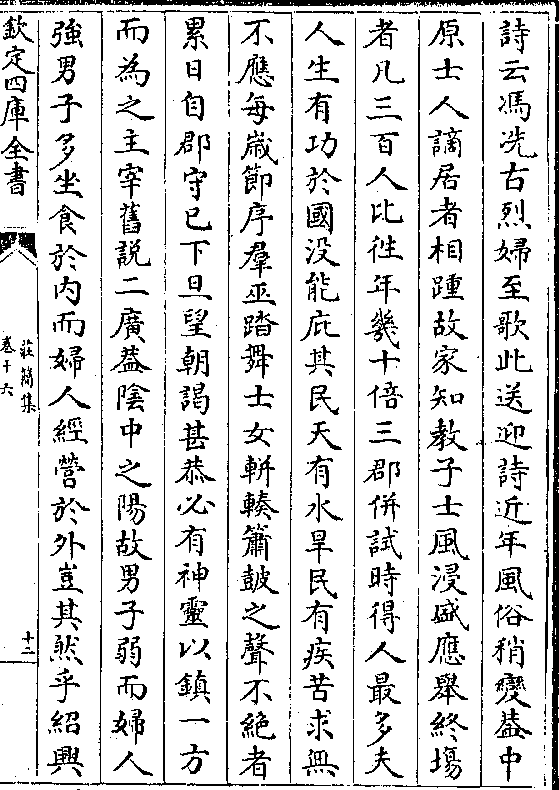 詩云馮冼古烈婦至歌此送迎詩近年風俗稍變葢中
原士人謫居者相踵故家知教子士風浸盛應舉終場
者凡三百人比徃年幾十倍三郡併試時得人最多夫
人生有功於國没能庇其民天有水旱民有疾苦求無
不應每嵗節序羣巫踏舞士女軿輳簫鼓之聲不絶者
累日自郡守已下旦望朝謁甚恭必有神靈以鎮一方
而為之主宰舊説二廣葢陰中之陽故男子弱而婦人
強男子多坐食於内而婦人經營於外豈其然乎紹興
欽定四庫全書
莊簡集
卷十六
十二